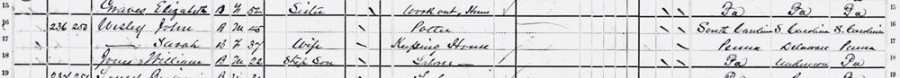 15 Graves Elizabeth B F 52 Sister Work out, Home Pa Pa Pa 15
16 236 250 Wesley John B M 45 Potter South Carolina S. Carolina S. Carolina
17 — Sarah B F 37 Wife Keeping House Penna Delaware Penna 17
18 Jones William B M 22 Step Son Laborer Pa unknown Pa 18
19 19